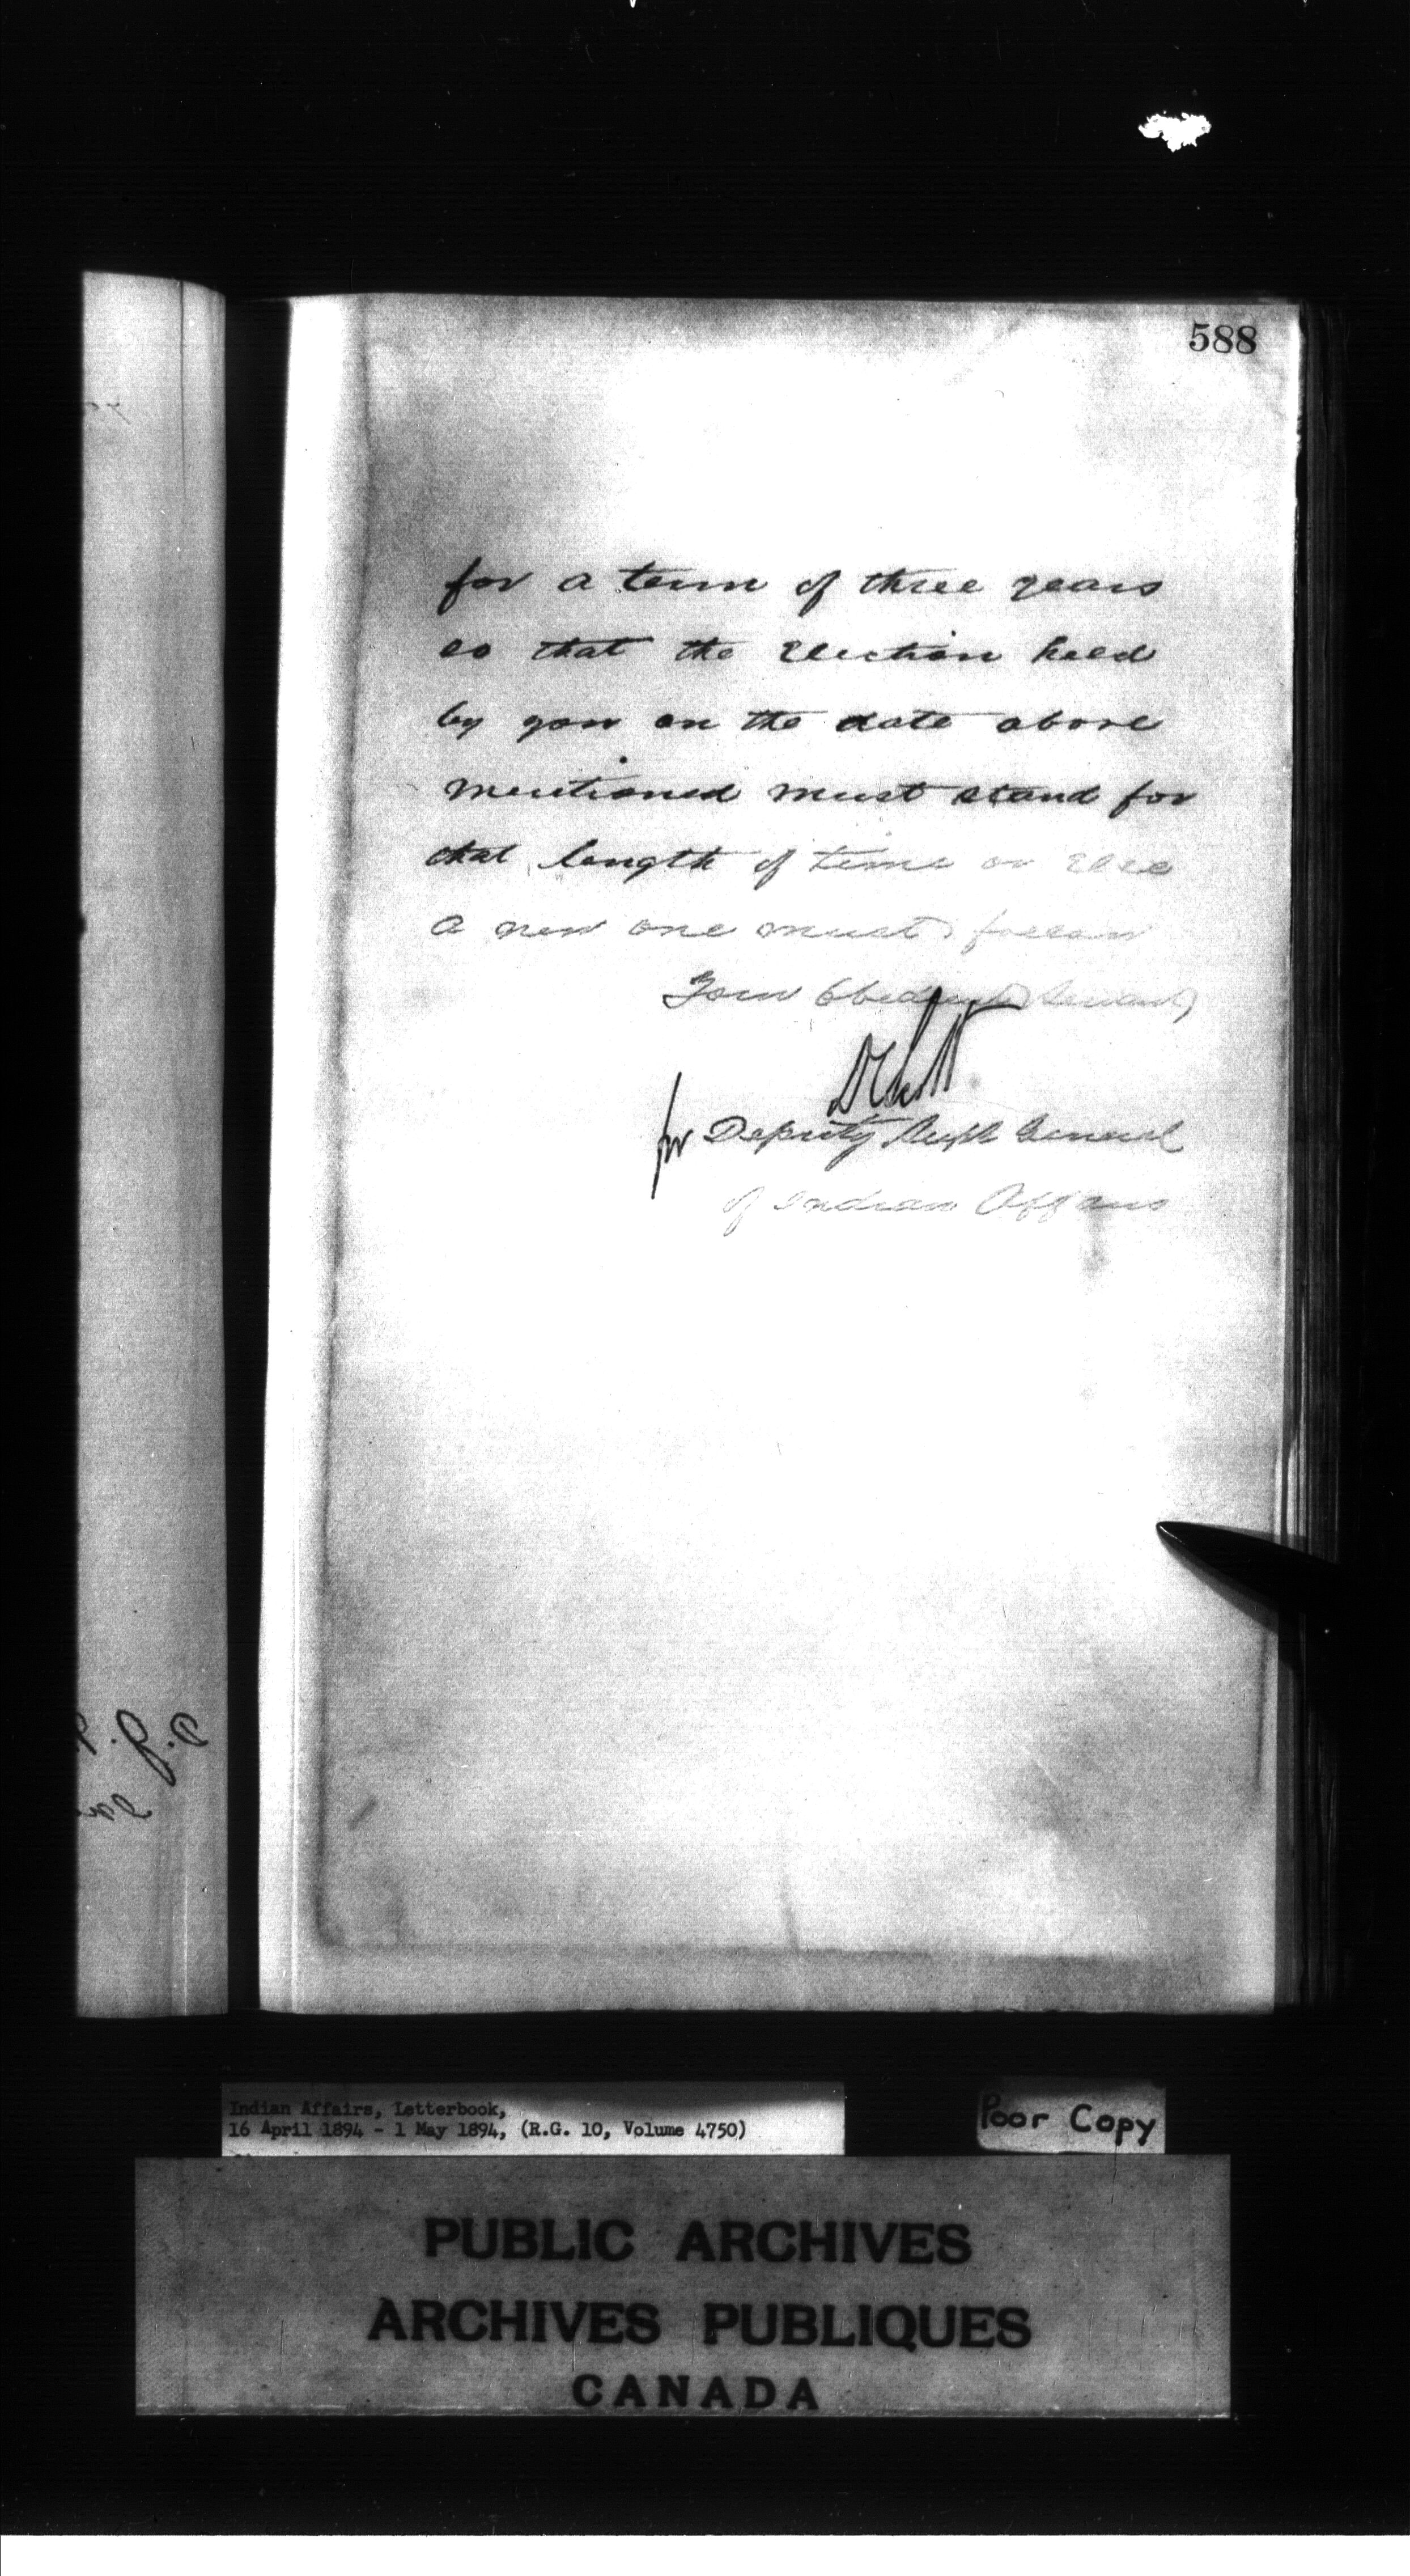 588
for a term of three years
so that the Election held
by you on the date above
mentioned must stand for
that length of time or else
a new one must follow
Your Obedient Servant,
D C Scott
for Deputy Supt General
of Indian Affairs
Indian Affairs, Letterbook,
16 April 1894 - 1 May 1894, (R.G. 10, Volume 4750)
Poor Copy
PUBLIC ARCHIVES
ARCHIVES PUBLIQUES
CANADA